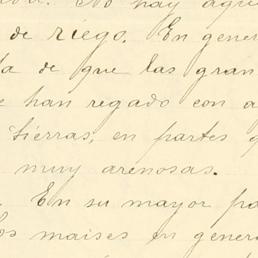 No hay aque
de riego. En gener
a de que las gran
e han regado con a
tierras, en partes q
muy arenosas.
. En su mayor pa
los maises en genera